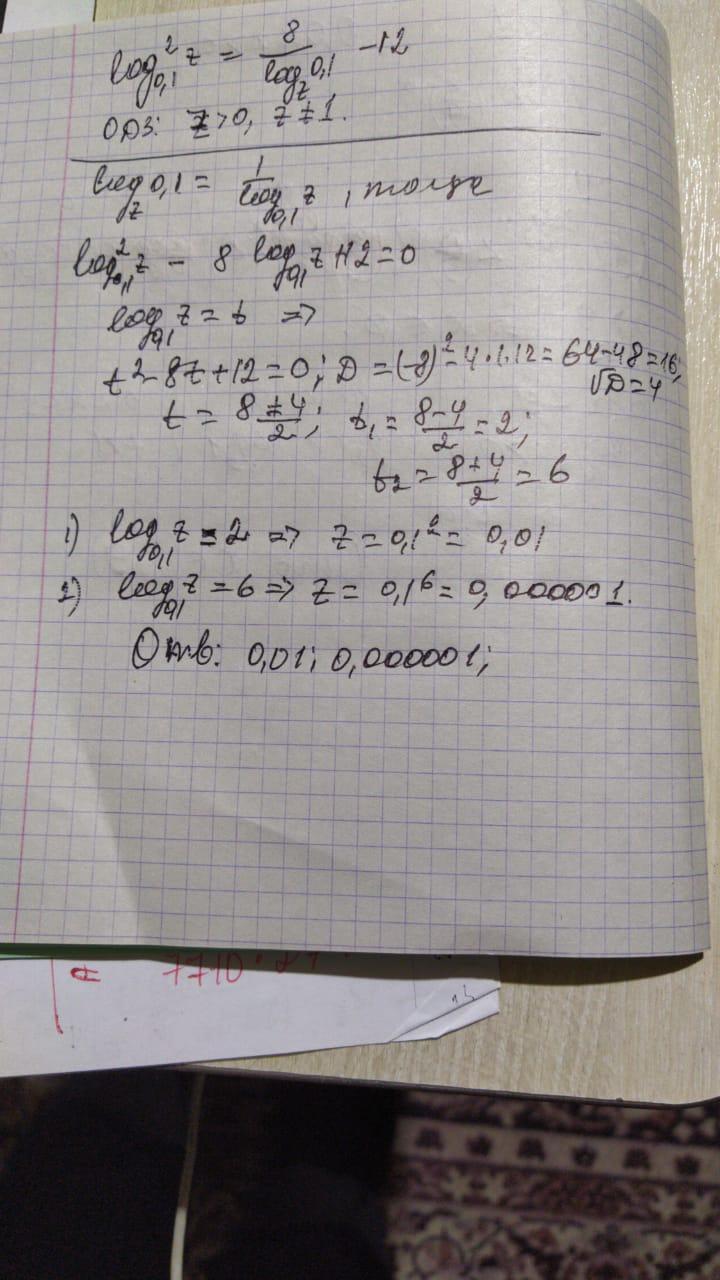 log²₀,₁ z = 8/log_z 0,1 -12
ОДЗ: z>0, z≠1.
log_z 0,1 = 1/log₀,₁ z , тогда
log²₀,₁ z - 8 log₀,₁ z +12=0
log₀,₁ z = t =>
t²-8t+12=0; D =(-8)²-4·1·12=64-48=16;
√D=4
t = (8±4)/2; t₁ = (8-4)/2 = 2;
t₂ = (8+4)/2 = 6
1) log₀,₁ z = 2 => z = 0,1² = 0,01
2) log₀,₁ z = 6 => z = 0,1⁶ = 0,000001.
Отв: 0,01; 0,000001;
7710